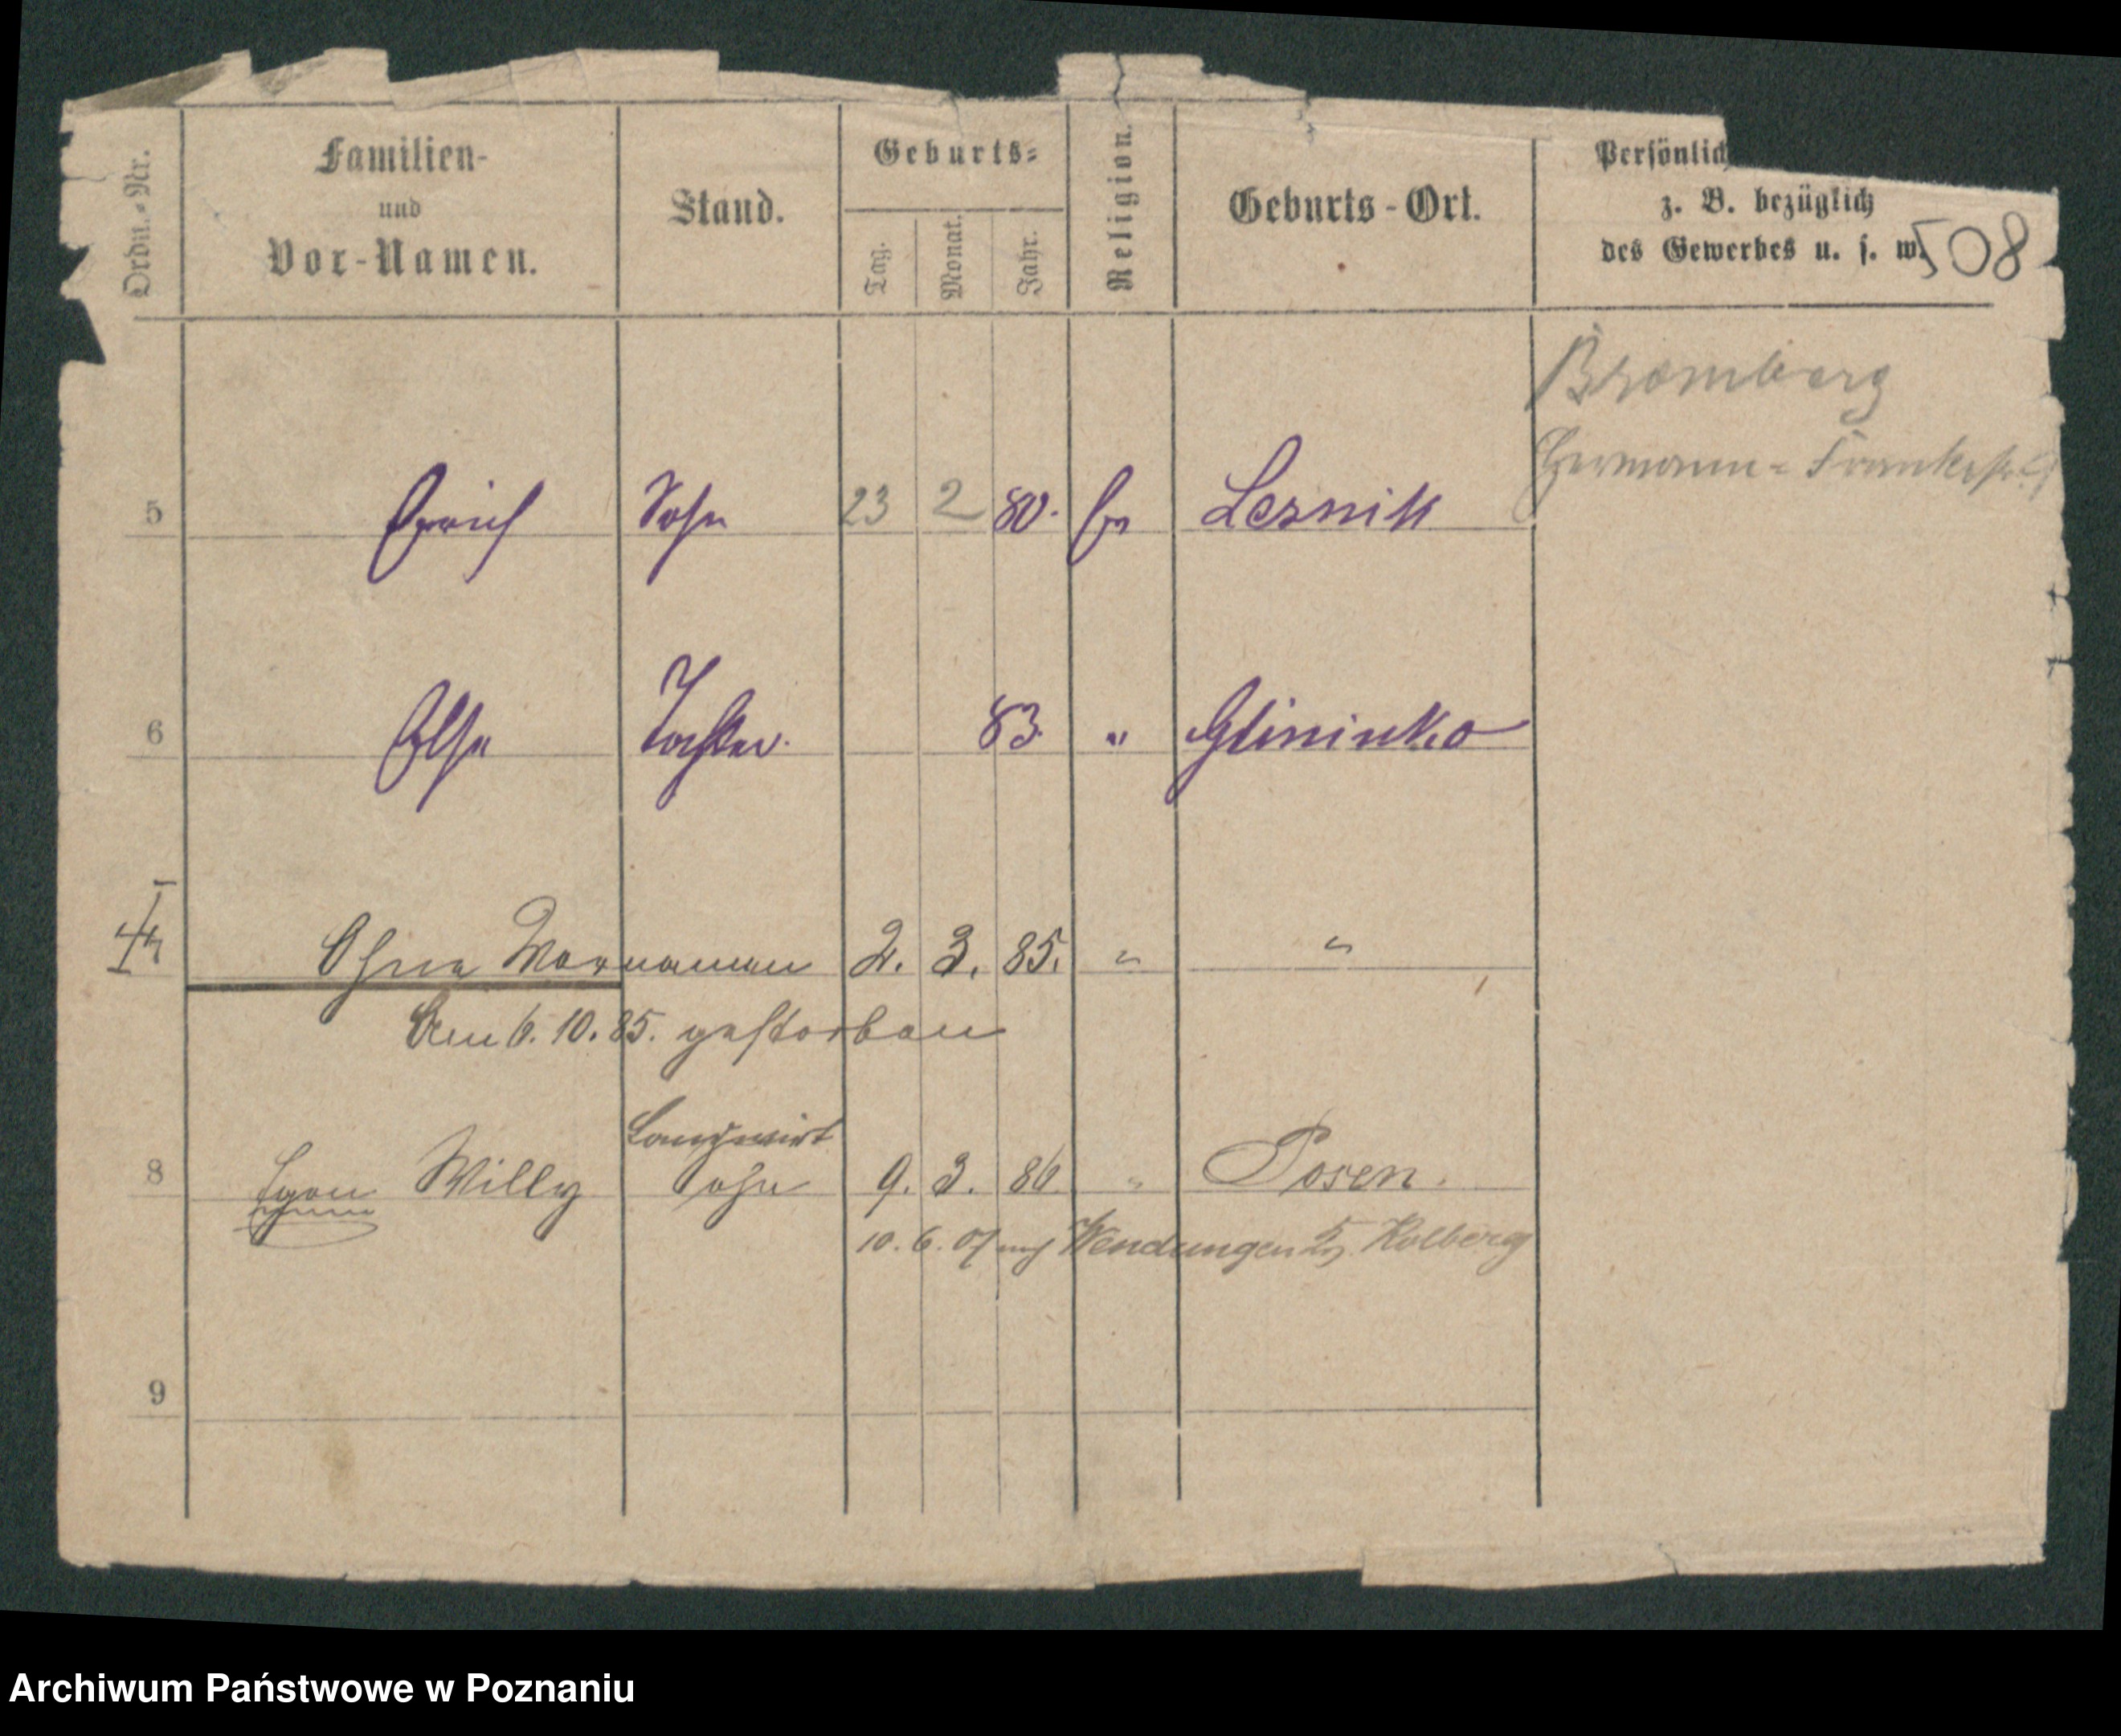 Ordn.-Nr. Familien- und Vor-Namen. Stand. Geburts- Tag. Monat. Jahr. Religion. Geburts-Ort. Persönlich
z. B. bezüglich
des Gewerbes u. s. w.
508
Bromberg
Hermann-Frankestr.
5 Erich Sohn 23 2 80. Ev Lesnik
6 Else Tochter. 83. " Glininko
7 Ohne Vornamen 2. 3. 85. " "
Am 6. 10. 85. gestorben
Landwirt
8 Egon Willy Sohn 9. 3. 86. " Posen.
10. 6. 07 nach Wendungen Kolberg
9
Archiwum Państwowe w Poznaniu